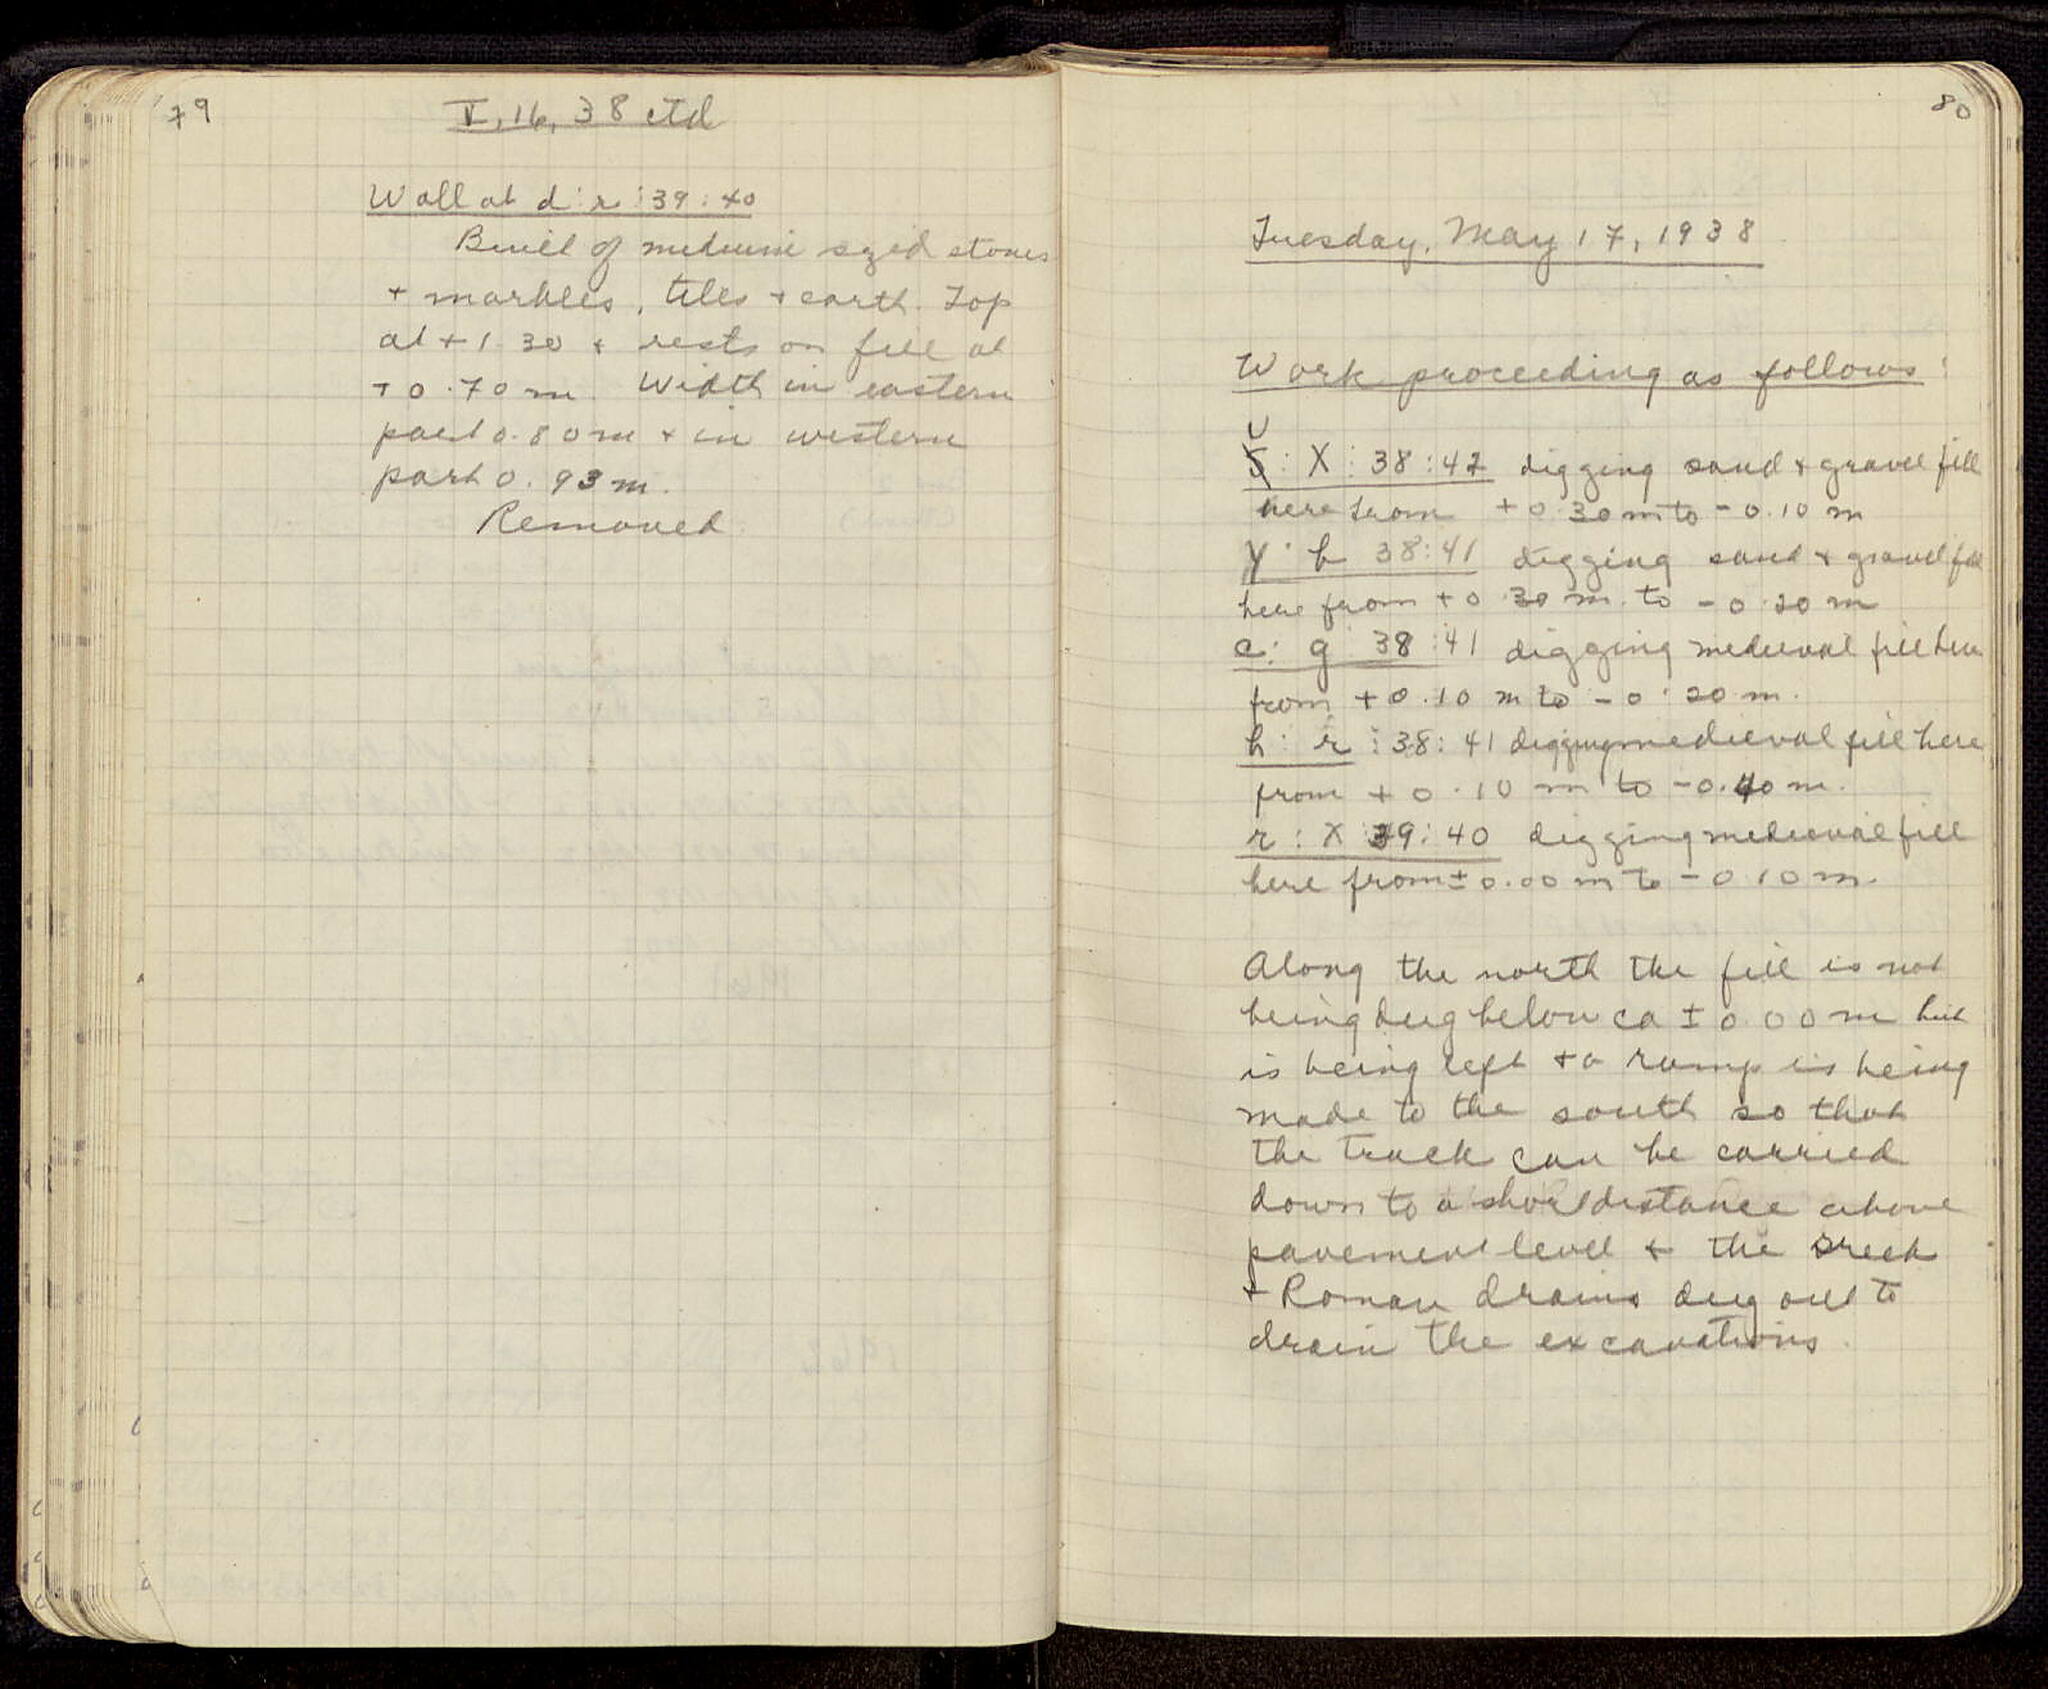 79
V, 16, 38 ctd
Wall at d:r:39:40
Built of medium sized stones
+ marbles, tiles + earth. Top
at +1.30 + rests on fill at
+0.70 m. Width in eastern
part 0.80 m + in western
part 0.93 m.
Removed.
80
Tuesday, May 17, 1938
Work proceeding as follows:
U
S: X: 38:42 digging sand + gravel fill
here from +0.30 m to -0.10 m
Y: b 38:41 digging sand + gravel fill
here from +0.30 m. to -0.20 m
c: g 38:41 digging medieval fill here
from +0.10 m to -0.20 m.
h: r: 38:41 digging medieval fill here
from +0.10 m to -0.40 m.
r: X 39:40 digging medieval fill
here from ±0.00 m to -0.10 m.
Along the north the fill is not
being dug below ca ±0.00 m but
is being left + a ramp is being
made to the south so that
the track can be carried
down to a short distance above
pavement level + the Greek
+ Roman drains dug out to
drain the excavations.